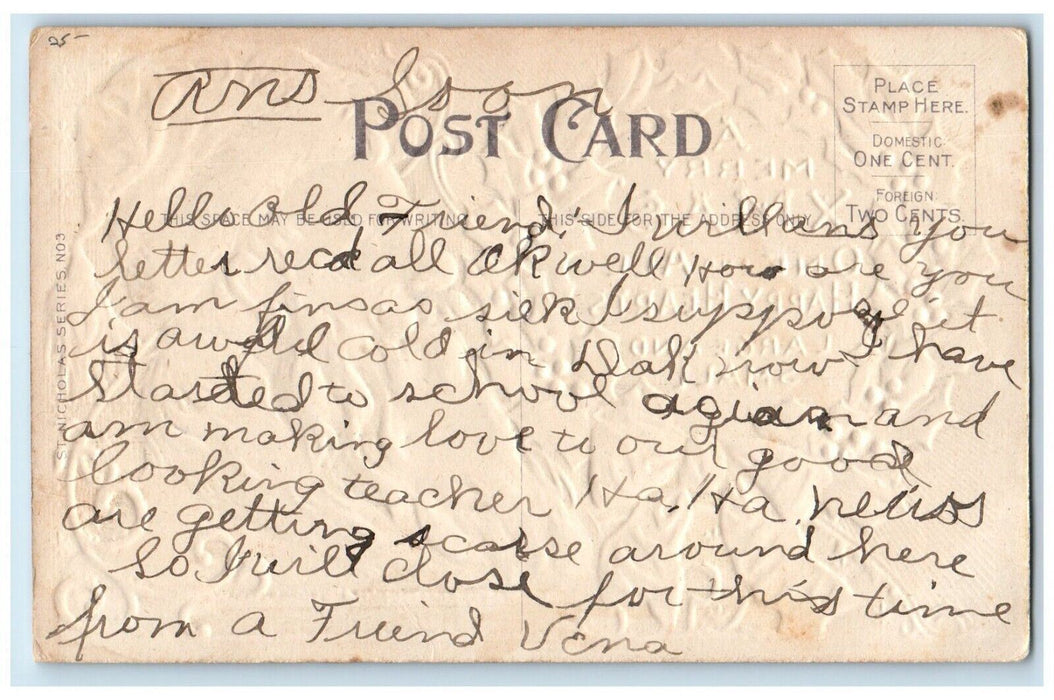 25-
Ans Soon
POST CARD
PLACE
STAMP HERE.
DOMESTIC
ONE CENT.
FOREIGN
TWO CENTS.
THIS SPACE MAY BE USED FOR WRITING
THIS SIDE FOR THE ADDRESS ONLY
ST. NICHOLAS SERIES. NO3
Hello Old Friend:- I will ans you
letter recd all OK well How are you
I am fin as sick I suppose it
is awful cold in Dak now I have
started to school agian and
am making love to our good
looking teacher Ha. Ha. neuos
are getting scarse around here
So I will close for this time
from a Friend Vena